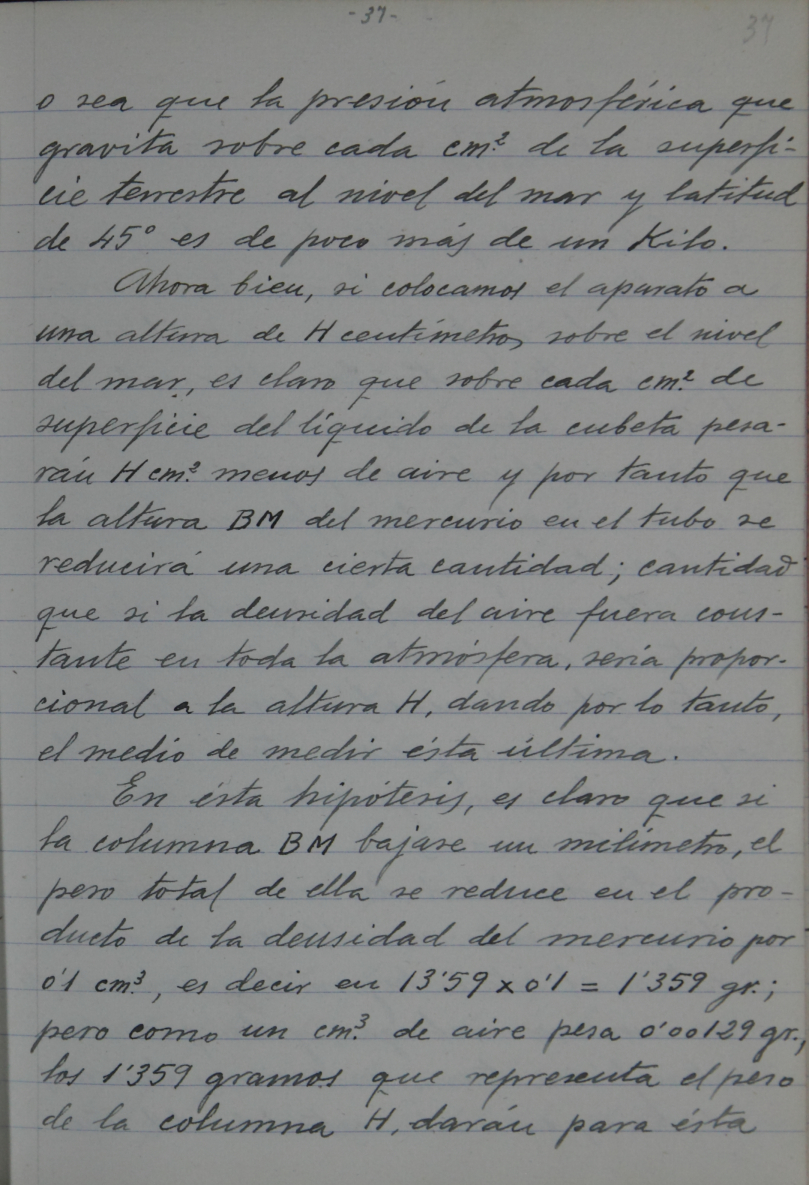 -37-
37
o sea que la presión atmosférica que
gravita sobre cada cm.² de la superfi-
cie terrestre al nivel del mar y latitud
de 45° es de poco más de un Kilo.
Ahora bien, si colocamos el aparato a
una altura de H centímetros sobre el nivel
del mar, es claro que sobre cada cm.² de
superficie del líquido de la cubeta pesa-
rán H cm.² menos de aire y por tanto que
la altura BM del mercurio en el tubo se
reducirá una cierta cantidad; cantidad
que si la densidad del aire fuera cons-
tante en toda la atmósfera, sería propor-
cional a la altura H, dando por lo tanto,
el medio de medir ésta última.
En ésta hipótesis, es claro que si
la columna BM bajase un milímetro, el
peso total de ella se reduce en el pro-
ducto de la densidad del mercurio por
0'1 cm.³, es decir en 13'59 x 0'1 = 1'359 gr.;
pero como un cm.³ de aire pesa 0'00129 gr.,
los 1'359 gramos que representa el peso
de la columna H, darán para ésta